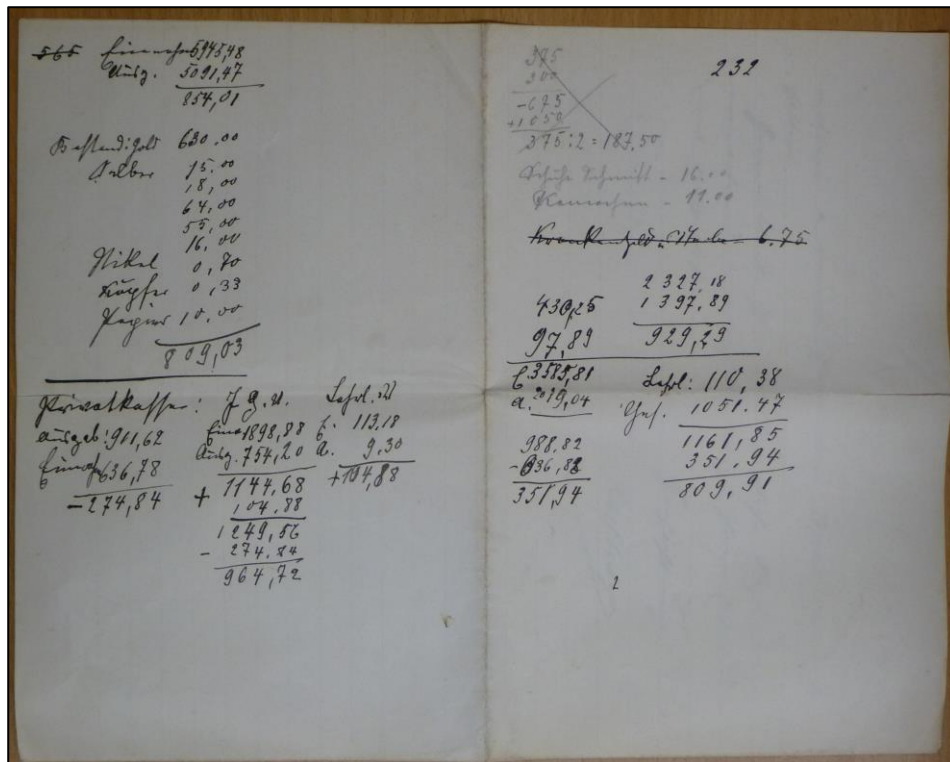 565 Einnahme 5945,48
Ausg. 5091,47
854,01
Bestand: Gold 630.00
Silber 15.00
18,00
64,00
55,00
16,00
Nikel 0,70
Kupfer 0,33
Papier 10,00
809,03
Privatkasse:
Ausgeb: 911,62
636,78
-274,84
J. G. V.
Einn. 1898,88
Ausg. 754,20
+ 1144,68
104,88
1249,56
- 274,84
964,72
Lehrl.
E. 113,18
A. 9,30
+104,88
232
375
300
-675
+1050
375:2=187.50
Schuhe - 16.00
- 11.00
Krankengeld - 6.75
430,25
97,89
2327,18
1397,89
929,29
E. 3585,81
A. 2019,04
988,82
-636,88
351,94
Lehrl: 110,38
Ges. 1051.47
1161,85
351.94
809,91
2